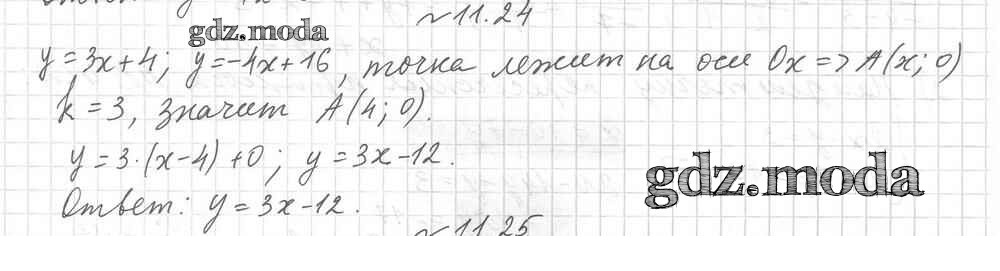 №11.24
gdz.moda
y=3x+4; y=-4x+16, точка лежит на оси Ox=>A(x;0)
k=3, значит A(4;0).
y=3·(x-4)+0; y=3x-12.
gdz.moda
Ответ: y=3x-12.
№11.25